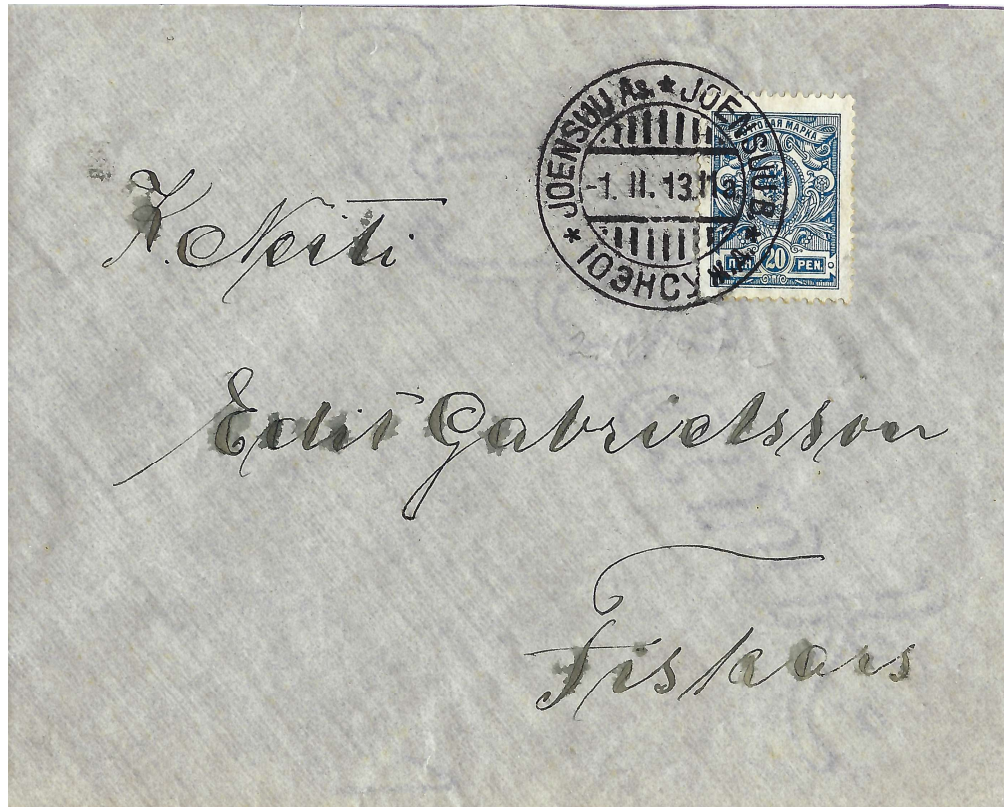 JOENSUU As. * JOENSUU B. * ІОЭНСУ Ж.Д. *
-1.II.13.
ПОЧТОВАЯ МАРКА
ПЕН. 20 PEN.
K. Neiti
Edit Gabrielsson
Fiskars